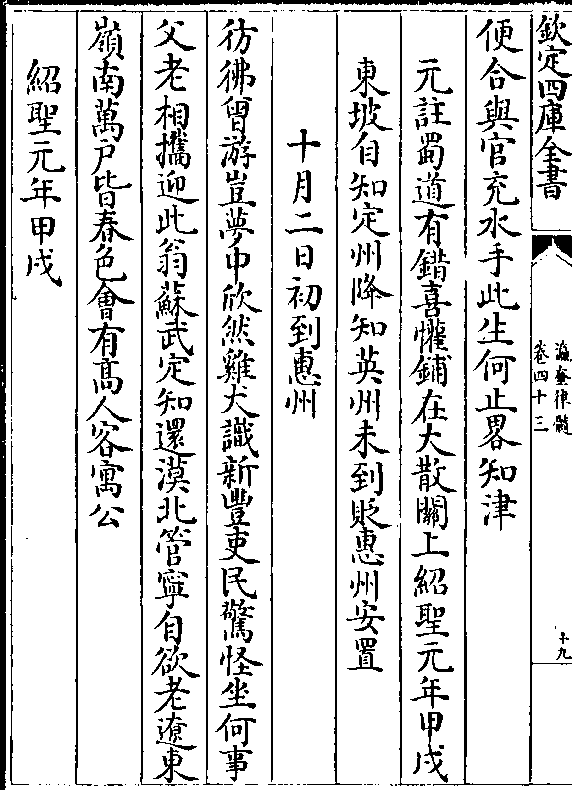 欽定四庫全書
瀛奎律髓
卷四十三
十九
便合與官充水手此生何止畧知津
元註蜀道有錯喜懽鋪在大散關上紹聖元年甲戌
東坡自知定州降知英州未到貶惠州安置
十月二日初到惠州
彷彿曾游豈夢中欣然雞犬識新豐吏民驚怪坐何事
父老相攜迎此翁蘇武定知還漠北管寧自欲老遼東
嶺南萬戶皆春色會有髙人客寓公
紹聖元年甲戌